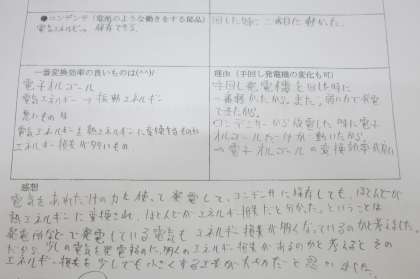 ●コンデンサ(電池のような働きをする部品)
電気エネルギーの保存できる。
回した時に一番軽かった。
一番変換効率の良いものは(^^)/
電子オルゴール
電気エネルギー→振動エネルギー
悪いものは
電気エネルギーを熱エネルギーに変換するもの
エネルギー損失が多いもの
理由(手回し発電機の変化も可)
手回し発電機を回した時に
一番軽かったから。また。弱い力で発電
できたから。
コンデンサーから放電した時に電子
オルゴールだけが動いたから。
→電子オルゴールの変換効率が良い
感想
電気をあれだけの力を使って発電して、コンデンサに保存しても、ほとんどが
熱エネルギーに変換され、ほとんどがエネルギー損失だと分かった。ということは
発電所などで発電している電気もエネルギー損失が
いるのか考えました。
だから、少しの電気を発電するのに
のエネルギー損失があるのかと考えると、その
エネルギー損失を少しでも小さくする工夫が大切だと思いました。